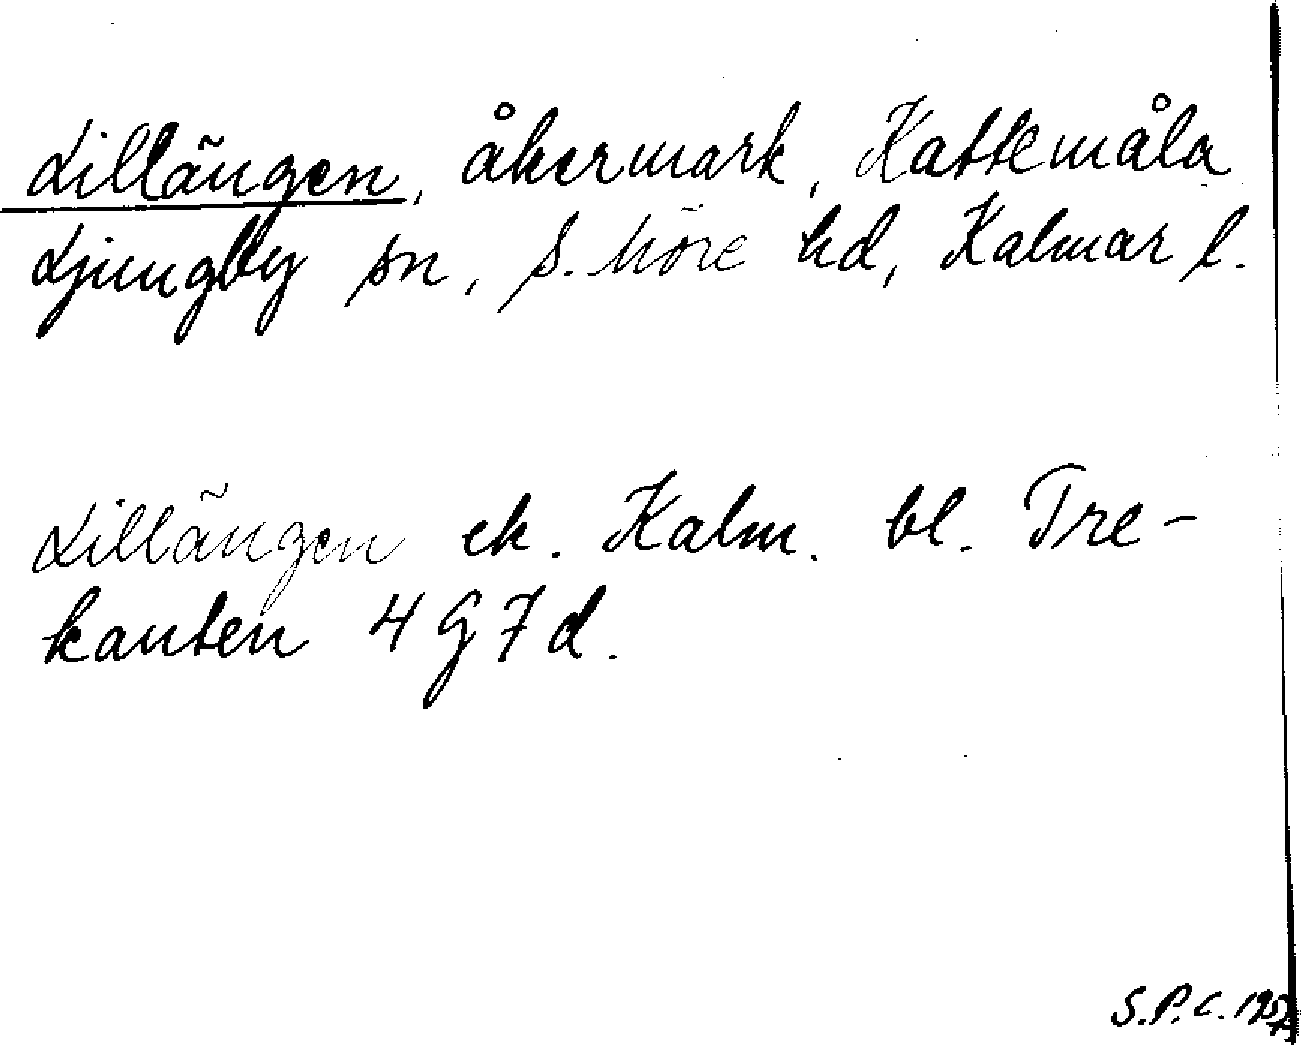 Lillängen, åkermark, Kattemåla
Ljungby sn, S. Möre hd, Kalmar l.
Lillängen ek. Kalm. bl. Tre-
kanten 4 G 7 d.
S.P.C.